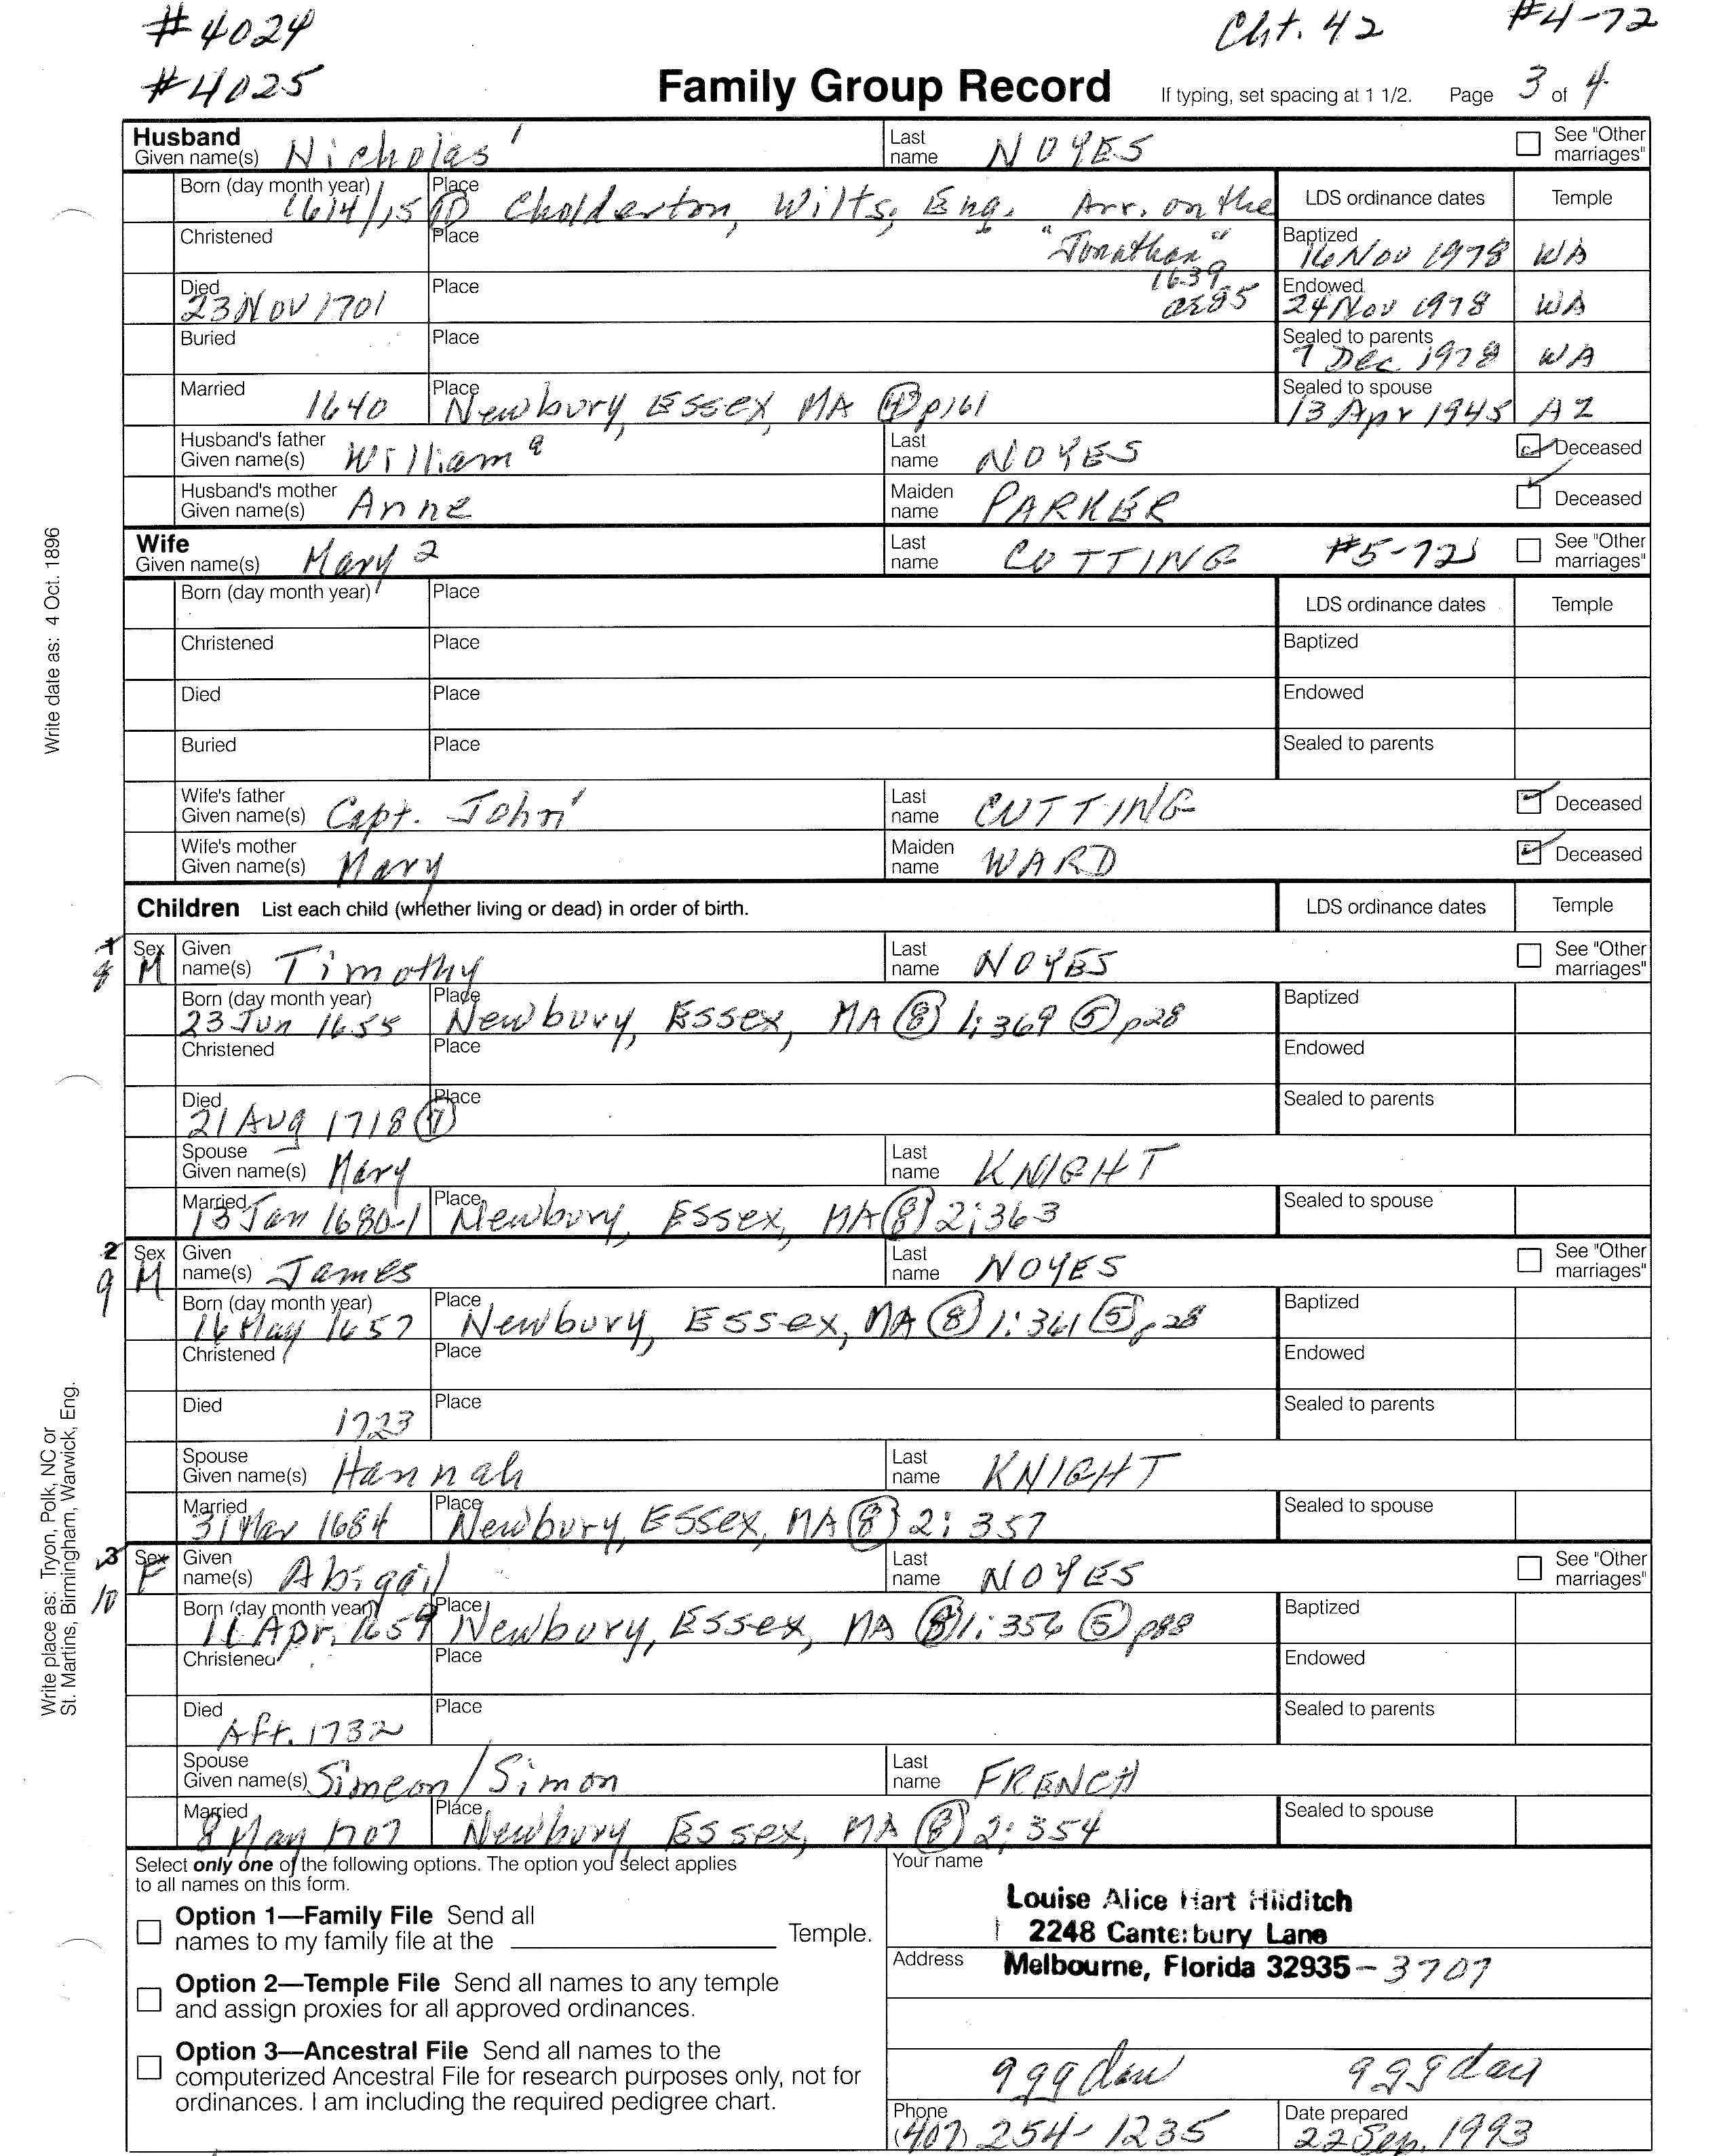 #4024 Cht. 42 #4-72
#4025 Family Group Record If typing, set spacing at 1 1/2. Page 3 of 4
Husband
Given name(s) Nicholas¹ Last name NOYES See "Other marriages"
Born (day month year) 1614/15 Place Cholderton, Wilts, Eng. Arr. on the LDS ordinance dates Temple
Christened Place "Jonathan" Baptized 16 Nov 1978 WA
1639
Died 23 Nov 1701 Place ae85 Endowed 24 Nov 1978 WA
Buried Place Sealed to parents 7 Dec 1978 WA
Married 1640 Place Newbury, Essex, MA p161 Sealed to spouse 13 Apr 1945 AZ
Husband's father Given name(s) William Last name NOYES Deceased
Husband's mother Given name(s) Anne Maiden name PARKER Deceased
Wife
Given name(s) Mary 2 Last name CUTTING #5-72 See "Other marriages"
Born (day month year) Place LDS ordinance dates Temple
Christened Place Baptized
Died Place Endowed
Buried Place Sealed to parents
Wife's father Given name(s) Capt. John¹ Last name CUTTING Deceased
Wife's mother Given name(s) Mary Maiden name WARD Deceased
Children List each child (whether living or dead) in order of birth. LDS ordinance dates Temple
1 8 Sex M Given name(s) Timothy Last name NOYES See "Other marriages"
Born (day month year) 23 Jun 1655 Place Newbury, Essex, MA (8) 1:369 (5) p28 Baptized
Christened Place Endowed
Died 21 Aug 1718 Place Sealed to parents
Spouse Given name(s) Mary Last name KNIGHT
Married 13 Jan 1680-1 Place Newbury, Essex, MA (8) 2:363 Sealed to spouse
2 9 Sex M Given name(s) James Last name NOYES See "Other marriages"
Born (day month year) 16 May 1657 Place Newbury, Essex, MA (8) 1:361 (5) p28 Baptized
Christened Place Endowed
Died 1723 Place Sealed to parents
Spouse Given name(s) Hannah Last name KNIGHT
Married 31 Mar 1684 Place Newbury, Essex, MA (8) 2:357 Sealed to spouse
3 10 Sex F Given name(s) Abigail Last name NOYES See "Other marriages"
Born (day month year) 11 Apr. 1659 Place Newbury, Essex, MA (8) 1:356 (5) p88 Baptized
Christened Place Endowed
Died Aft. 1732 Place Sealed to parents
Spouse Given name(s) Simeon/Simon Last name FRENCH
Married 8 May 1707 Place Newbury Essex, MA (8) 2:354 Sealed to spouse
Select only one of the following options. The option you select applies
to all names on this form.
Option 1—Family File Send all
names to my family file at the Temple.
Option 2—Temple File Send all names to any temple
and assign proxies for all approved ordinances.
Option 3—Ancestral File Send all names to the
computerized Ancestral File for research purposes only, not for
ordinances. I am including the required pedigree chart.
Your name
Louise Alice Hart Hilditch
2248 Canterbury Lane
Address Melbourne, Florida 32935-3707
9ggdau 9ggdau
Phone (407) 254-1235 Date prepared 22 Sep. 1993
Write date as: 4 Oct. 1896
Write place as: Tryon, Polk, NC or
St. Martins, Birmingham, Warwick, Eng.